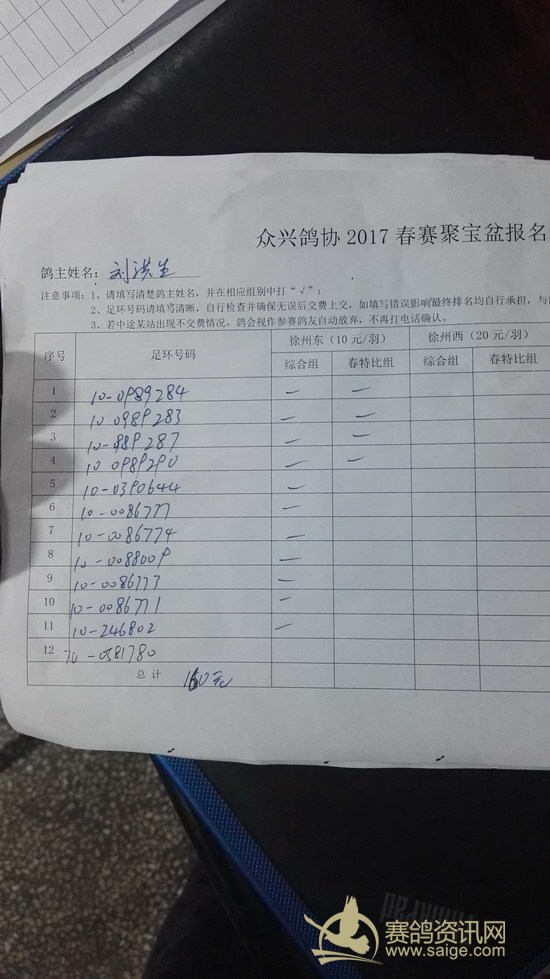 众兴鸽协 2017 春赛聚宝盆报名
鸽主姓名：刘洪生
注意事项：1、请填写清楚鸽主姓名，并在相应组别中打“√”；
2、足环号码请填写清晰，自行检查并确保无误后交费上交，如填写错误影响最终排名均自行承担，与
3、若中途某站出现不交费情况，鸽会视作参赛鸽友自动放弃，不再打电话确认。
序号 足环号码 徐州东（10 元/羽） 徐州西（20 元/羽）
综合组 春特比组 综合组 春特比组
1 10-0989284 — —
2 10 0989283 — —
3 10-989287 — —
4 10 0989290 — —
5 10-0390644 —
6 10-0086777 —
7 10-0086774 —
8 10-0088009 —
9 10-0086773 —
10 10-0086771 —
11 10-246802 —
12 10-0581780
总 计 160元
赛鸽资讯网
www.saige.com